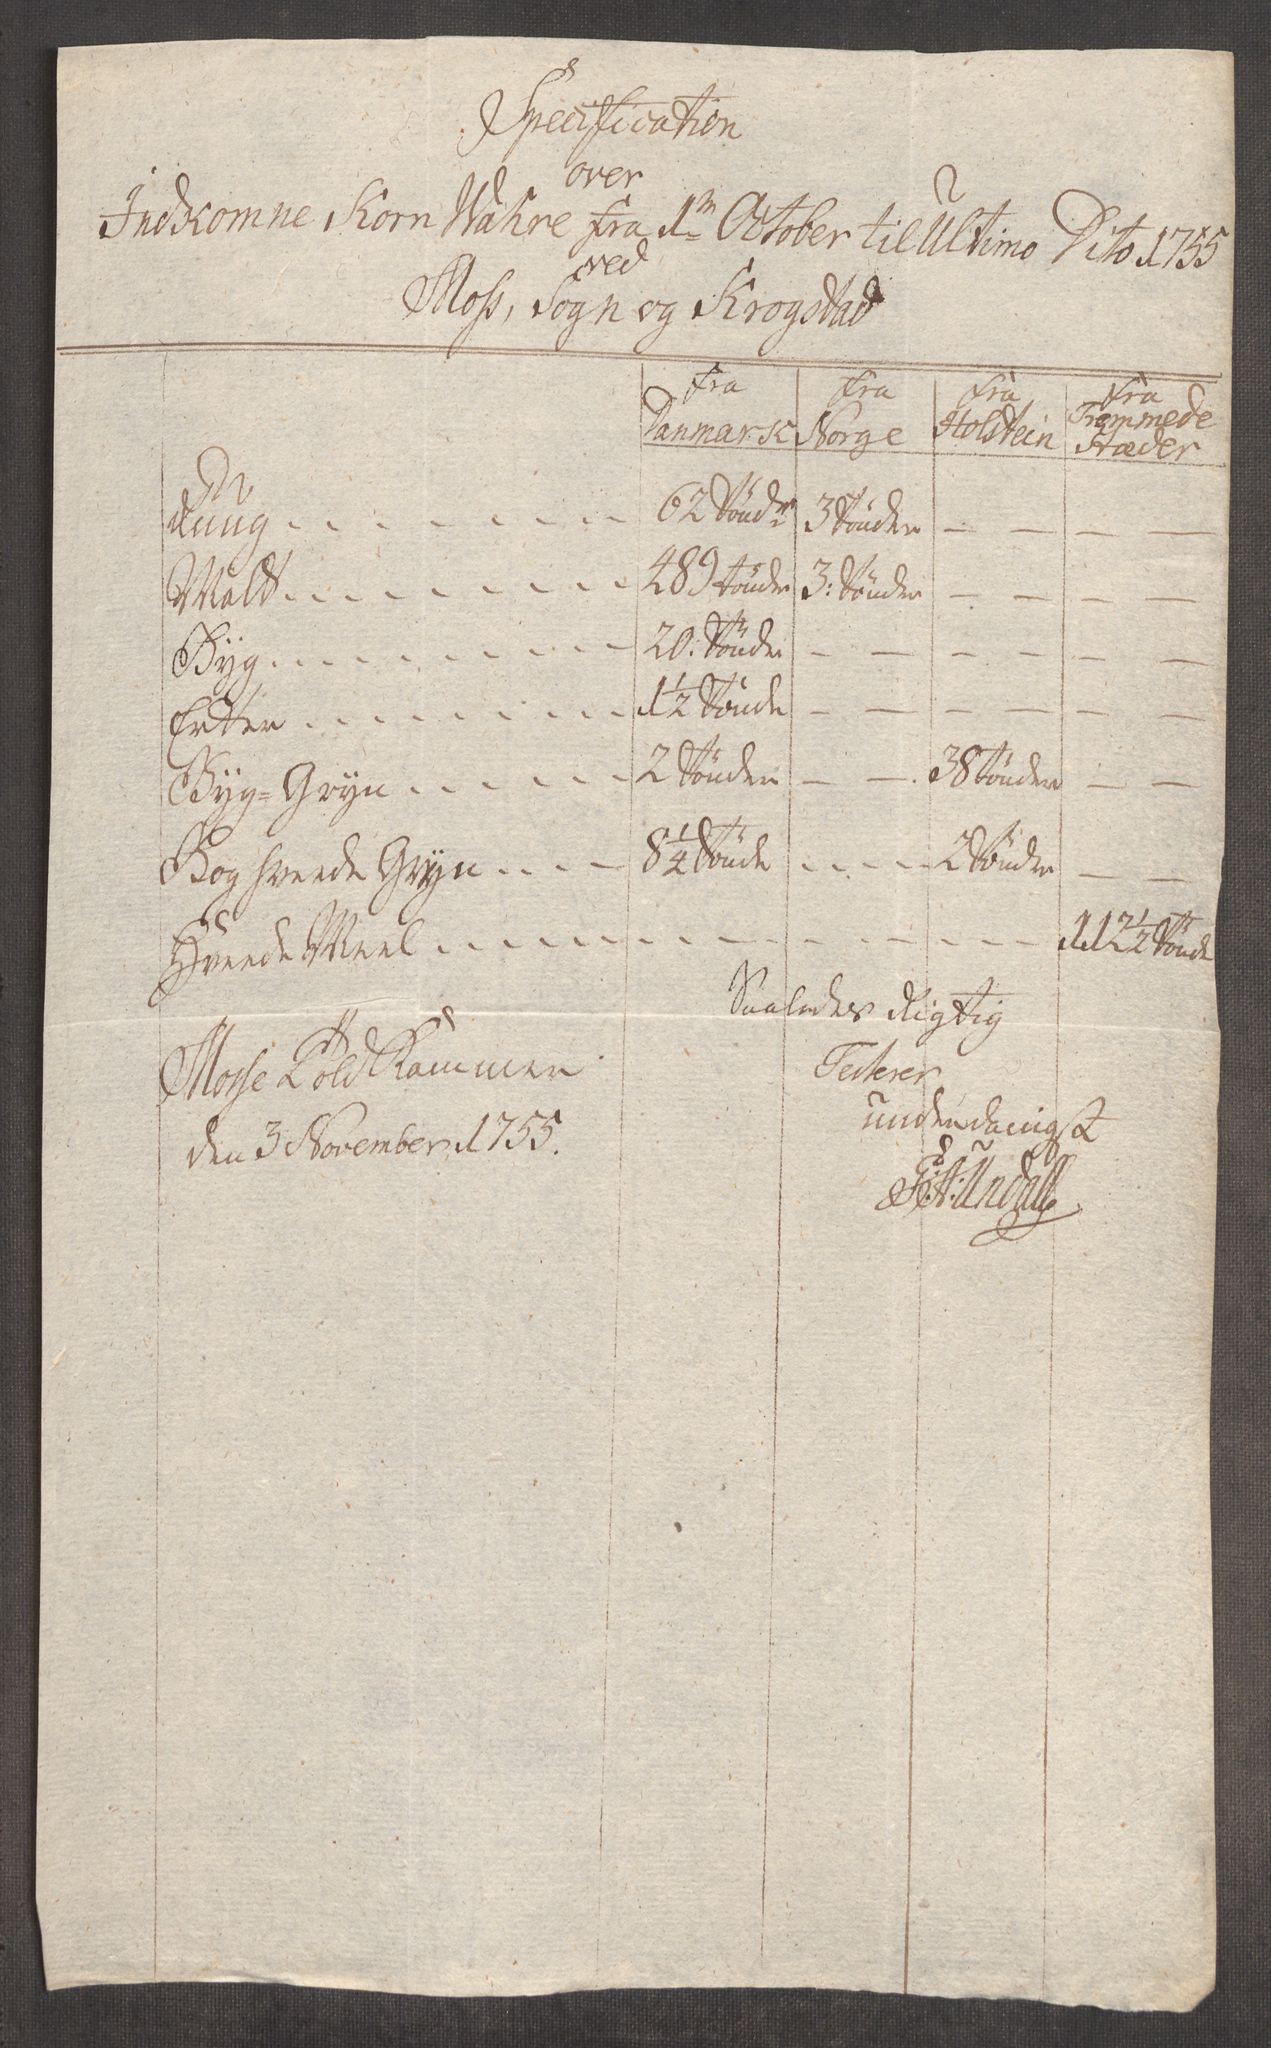 Specification
over
Indkomne Korn Wahre fra 1m October til Ultimo Dito 1755
ved
Moss, Sogn og Krogstad
fra Danmark fra Norge fra Holstein fra Fremmede Stæder
Rug 62 Tönder 3 Tönder — — — —
Malt 489 tönder 3: Tönder — — — —
Byg 20. Tönder — — — — — —
Erter 1½ Tönde — — — — — —
Byg=Gryn 2 Tönder — — 38 Tönder — —
Boghveede Gryn 8¼ Tönde 2 Tönder — —
Hveede Meel 112½ Tönde
Saaledes Rigtig
Mosse Told Kammer Testerer
den 3 November 1755. underdanigst
Undall